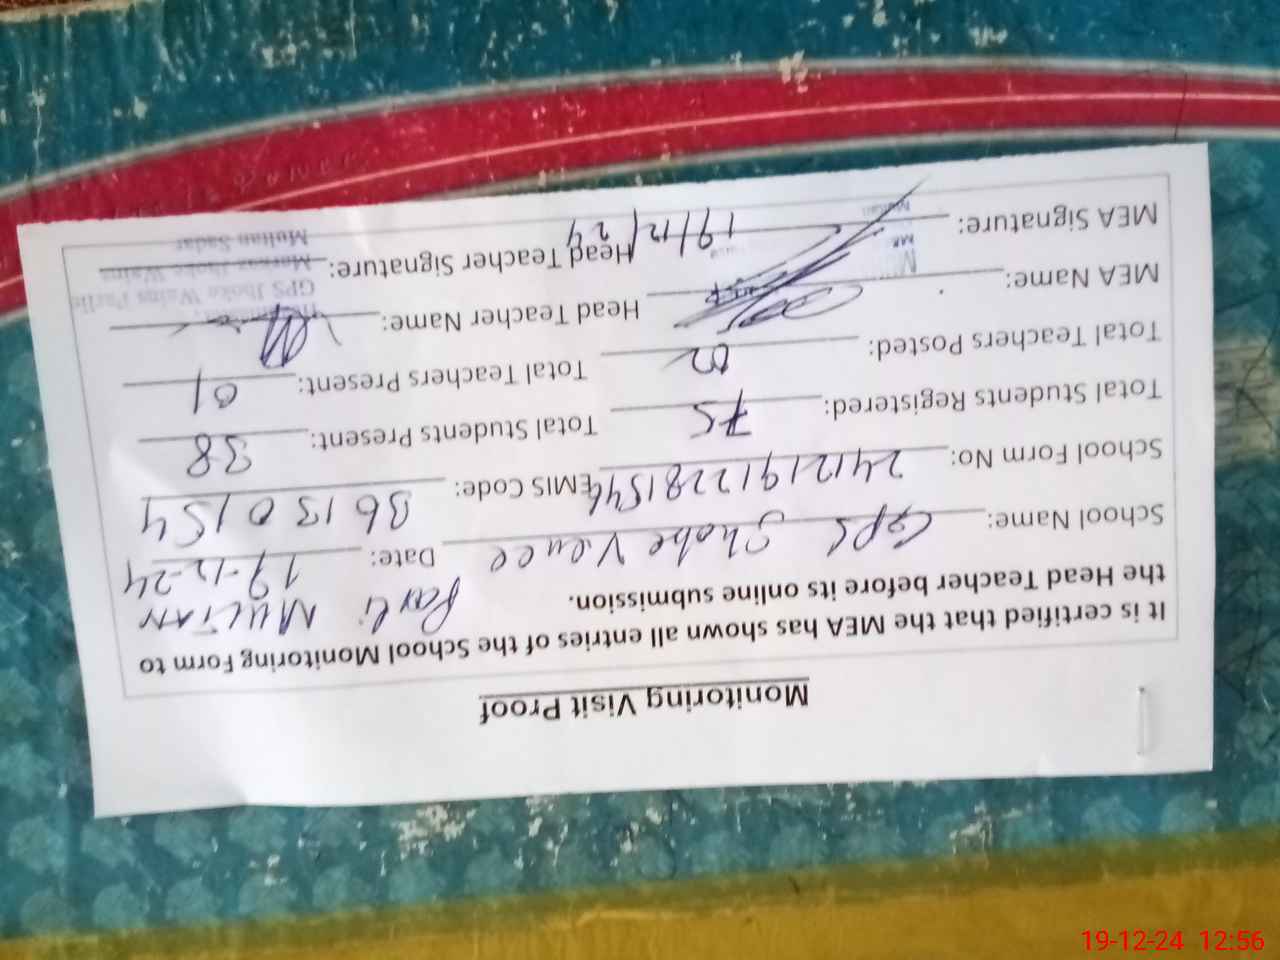 Monitoring Visit Proof
It is certified that the MEA has shown all entries of the School Monitoring Form to
the Head Teacher before its online submission.
Parli MULTAN
School Name: GPS Jhoke Date: 19-12-24
School Form No: 24121912281546 EMIS Code: 36130154
Total Students Registered: 75 Total Students Present: 38
Total Teachers Posted: 02 Total Teachers Present: 01
MEA Name: Head Teacher Name:
GPS Jhoke Wains Parli
MEA Signature: 19/12/24 Head Teacher Signature:
Markaz Jhoke Wains
Multan Sadar
Multan
19-12-24 12:56